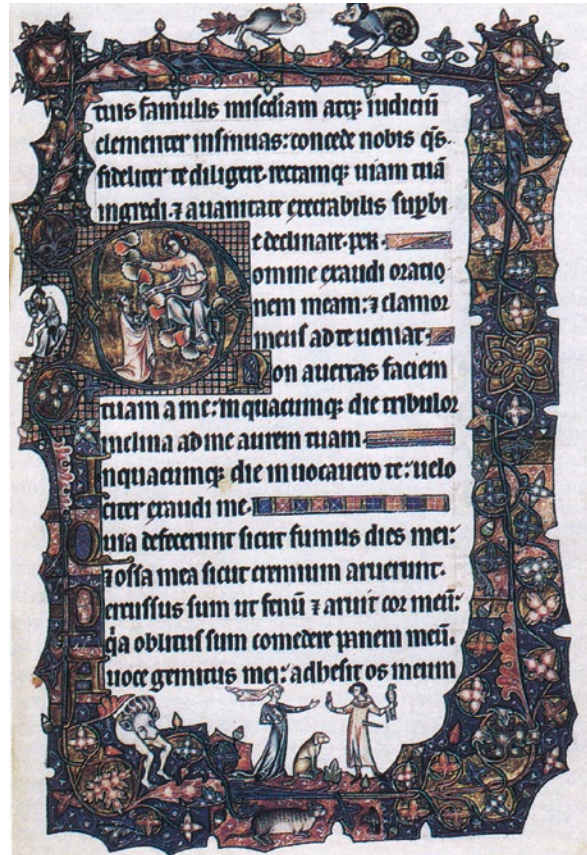 tuis famulis miscdiam atq; iudiciū
clementer insinuas: concede nobis q̄s.
fideliter te diligere. rectamq; uiam tuā
ingredi. ⁊ auanitate execrabilis supbi
e declinare. per.
omine exaudi oratio
nem meam: ⁊ clamor
meus ad te ueniat.
Non auertas faciem
tuam a me: in quacumq; die tribulor
inclina ad me aurem tuam.
Inquacumq; die inuocauero te: uelo
citer exaudi me.
Quia defecerunt sicut fumus dies mei:
⁊ ossa mea sicut cremium aruerunt.
Percussus sum ut fenū ⁊ aruit cor meū:
q̄a oblitus sum comedere panem meū.
A uoce gemitus mei: adhesit os meum